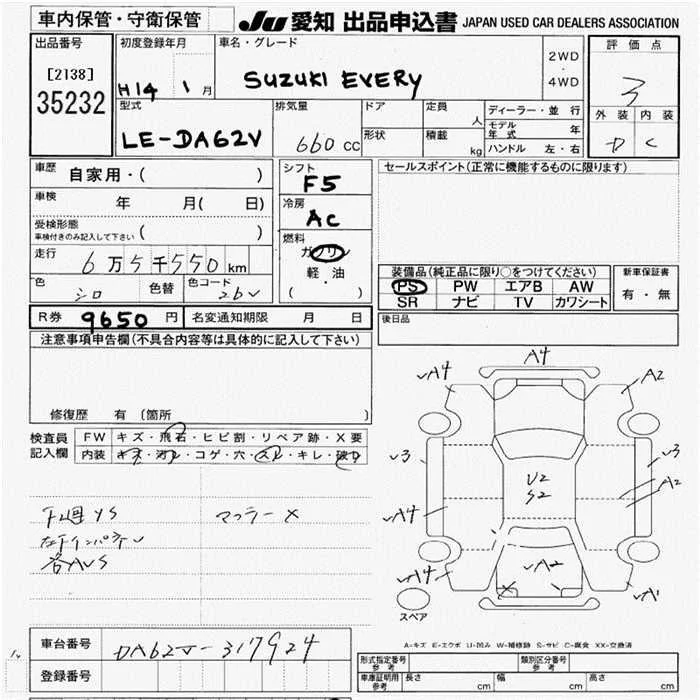 車内保管・守衛保管
JU 愛知 出品申込書 JAPAN USED CAR DEALERS ASSOCIATION
出品番号
[2138]
35232
初度登録年月
H14 1 月
車名・グレード
SUZUKI EVERY
2WD
・
4WD
評価点
3
外装 内装
D C
型式
LE-DA62V
排気量
660 cc
ドア
形状
定員 人
積載 kg
ディーラー・並行
モデル年式 年
ハンドル 左・右
車歴
自家用・( )
車検 年 月( 日)
受検形態
車検付きのみ記入して下さい ( )
走行
6万5千550km
色
シロ
色替
色コード
26V
シフト
F5
冷房
AC
燃料
ガソリン
軽・油
( ・ )
セールスポイント(正常に機能するものに限ります)
装備品(純正品に限り○をつけてください)
PS PW エアB AW
SR ナビ TV カワシート
新車保証書
有・無
R券 9650 円
名変通知期限 月 日
後日品
注意事項申告欄(不具合内容等は具体的に記入して下さい)
修復歴 有 (箇所 )
検査員
記入欄
FW キズ・飛石・ヒビ割・リペア跡・X要
内装 キズ・汚れ・コゲ・穴・スレ・キレ・破れ
下廻 YS
マフラー X
各AUS
A4
A4
A2
3
3
U2
S2
A2
A4
A2
A4
A1
スペア
A-キズ E-エクボ U-凹み W-補修跡 S-サビ C-腐食 XX-交換済
車台番号
DA62V-317924
登録番号
形式指定番号
参考
類別区分番号
参考
車庫証明用
参考
長さ cm
幅 cm
高さ cm